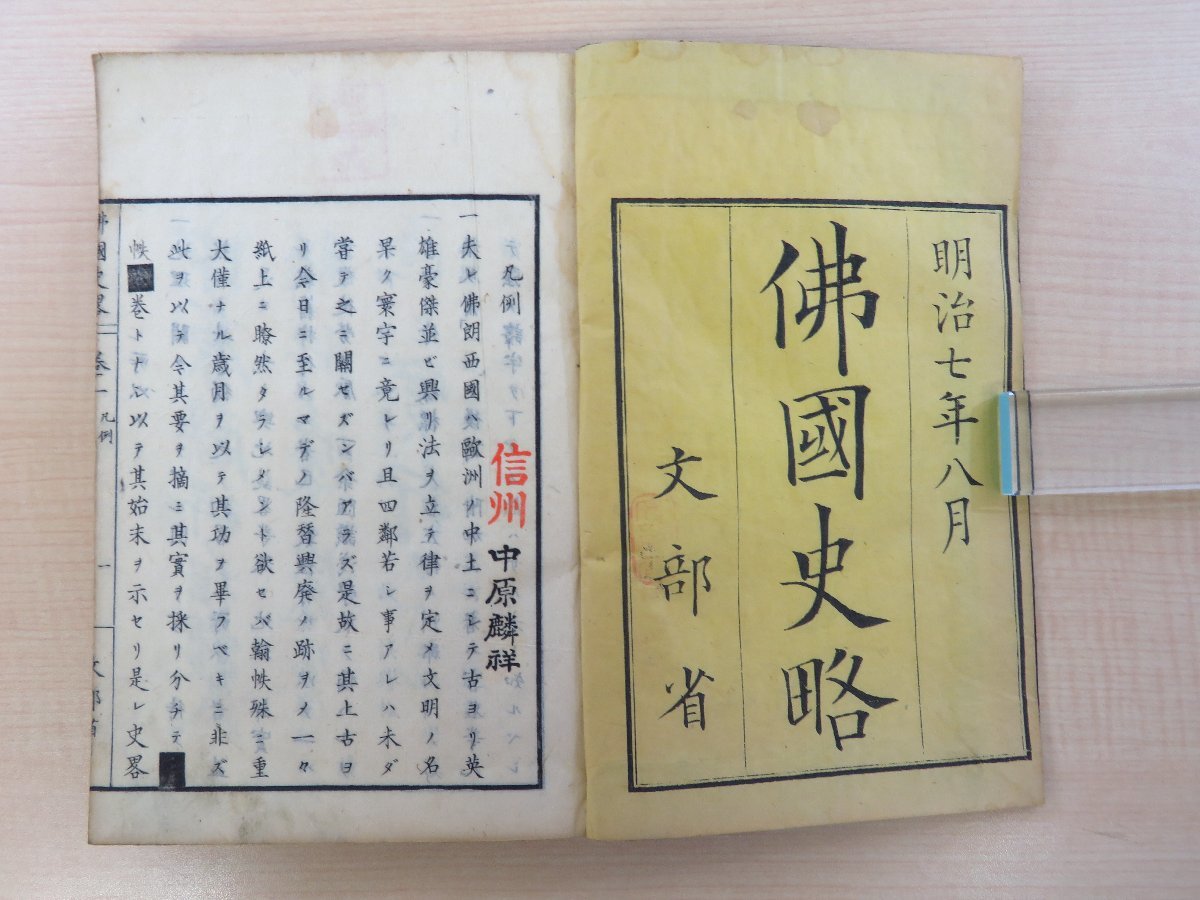 明治七年八月
佛國史略
文部省
凡例
信州
中原麟祥
一夫レ佛朗西國ハ歐洲ノ中土ニシテ古ヨリ英
雄豪傑並ビ興リ法ヲ立テ律ヲ定メ文明ノ名
早ク寰宇ニ竟レリ且四鄰若シ事アレハ未ダ
嘗テ之ニ關セズンバアラズ是故ニ其上古ヨ
リ今日ニ至ルマデノ隆替興廃ノ跡ヲメ一々
紙上ニ瞭然タラシメント欲セバ翰帙殊ニ重
大僅ナル歳月ヲ以テ其功ヲ畢フベキニ非ズ
此ヲ以テ今其要ヲ摘ミ其實ヲ採リ分チテ
帙 巻トナシ以テ其始末ヲ示セリ是レ史畧
佛國史畧 卷一 凡例 一 文部省